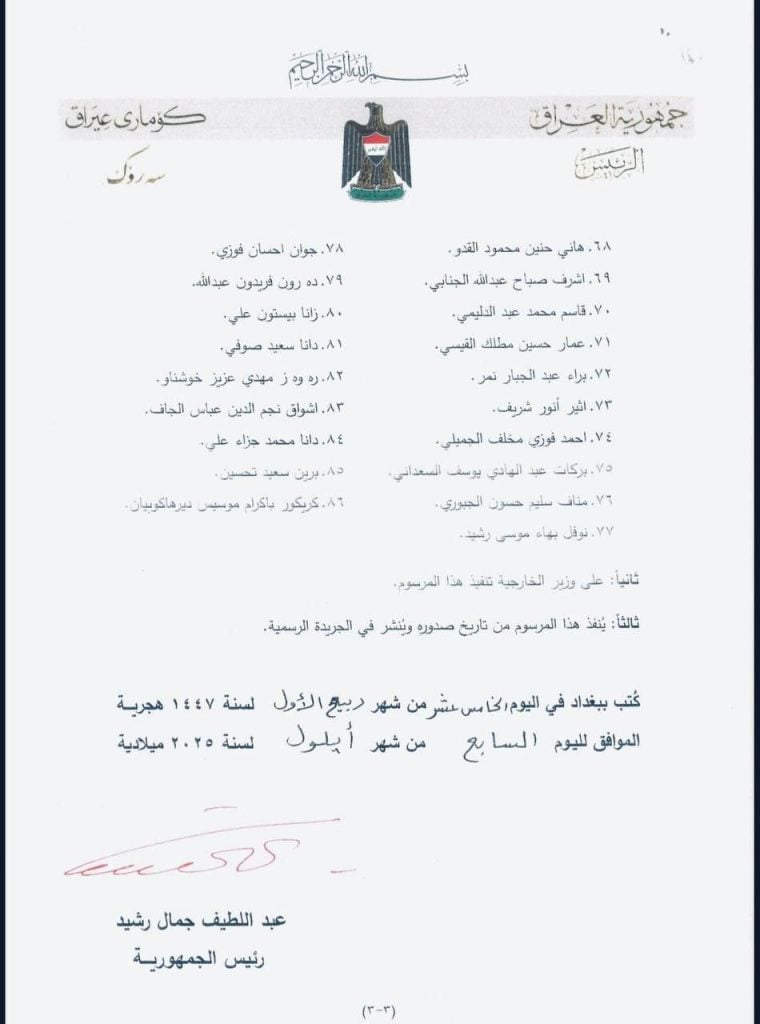 ١٠
بسم الله الرحمن الرحيم
جمهورية العراق
الرئيس
كۆماری عێراق
سەرۆک
٦٨. هاني حنين محمود القدو.
٦٩. اشرف صباح عبدالله الجنابي.
٧٠. قاسم محمد عبد الدليمي.
٧١. عمار حسين مطلك القيسي.
٧٢. براء عبد الجبار نمر.
٧٣. اثير أنور شريف.
٧٤. احمد فوزي مخلف الجميلي.
٧٥. بركات عبد الهادي يوسف السعداني.
٧٦. مناف سليم حسون الجبوري.
٧٧. نوفل بهاء موسى رشيد.
٧٨. جوان احسان فوزي.
٧٩. ده رون فريدون عبدالله.
٨٠. زانا بيستون علي.
٨١. دانا سعيد صوفي.
٨٢. ره وه ز مهدي عزيز خوشناو.
٨٣. اشواق نجم الدين عباس الجاف.
٨٤. دانا محمد جزاء علي.
٨٥. برين سعيد تحسين.
٨٦. كريكور باكرام موسيس ديرهاكوبيان.
ثانياً: على وزير الخارجية تنفيذ هذا المرسوم.
ثالثاً: يُنفذ هذا المرسوم من تاريخ صدوره ويُنشر في الجريدة الرسمية.
كُتب ببغداد في اليوم الخامس عشر من شهر ربيع الأول لسنة ١٤٤٧ هجرية
الموافق لليوم السابع من شهر أيلول لسنة ٢٠٢٥ ميلادية
عبد اللطيف جمال رشيد
رئيس الجمهورية
(٣-٣)